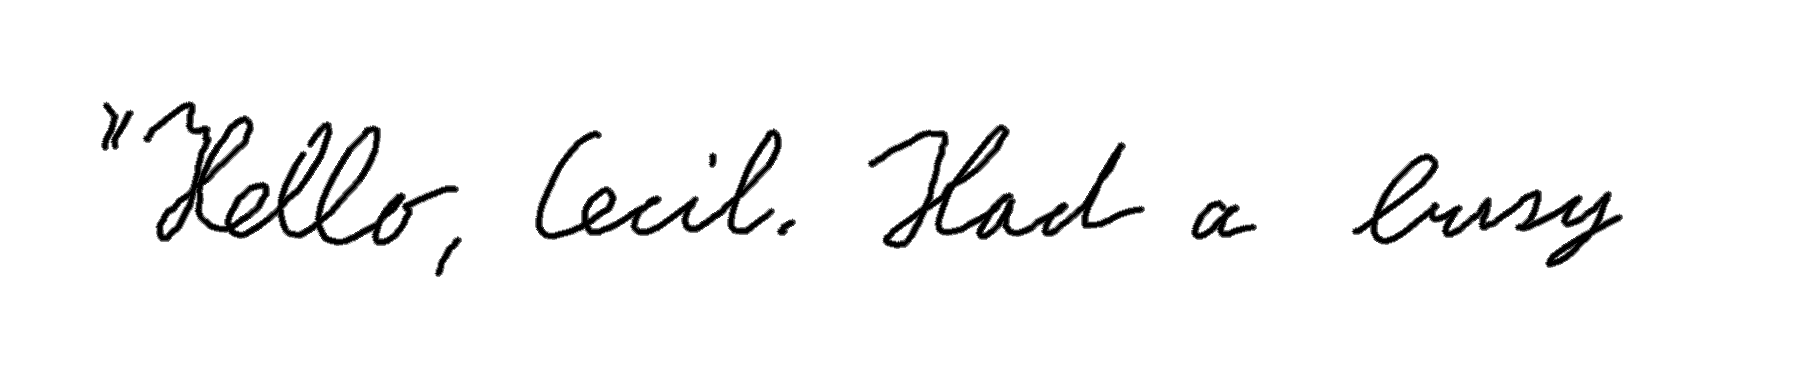 "Hello, Cecil. Had a busy